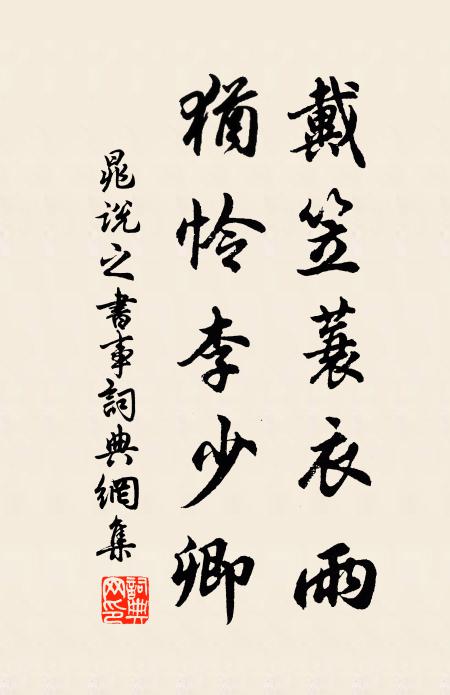 戴笠蓑衣雨
猶怜李少卿
晁说之書事詞典網集
詞典網印